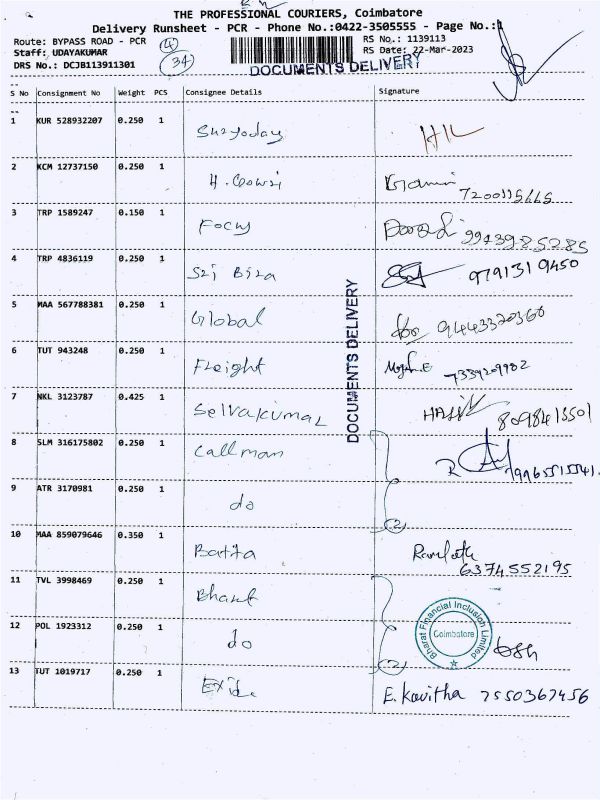 THE PROFESSIONAL COURIERS, Coimbatore
Delivery Runsheet - PCR - Phone No.:0422-3505555 - Page No.:
Route: BYPASS ROAD - PCR
RS No.: 1139113
Staff: UDAYAKUMAR
RS Date: 22-Mar-2023
DRS No.: DCJB113911301
34
DOCUMENTS DELIVERY
S No Consignment No Weight PCS Consignee Details Signature
1 KUR 528932207 0.250 1 Suryoday
2 KCM 12737150 0.250 1 H. Gowri
3 TRP 1589247 0.150 1 Focus 9943985285
4 TRP 4836119 0.250 1 Sri Bira 9791319450
5 MAA 567788381 0.250 1 Global 94443320360
6 TUT 943248 0.250 1 Freight 7339209982
7 NKL 3123787 0.425 1 Selvakumar 8098413501
DOCUMENTS DELIVERY
8 SLM 316175802 0.250 1 Callman
9 ATR 3170981 0.250 1 do (2)
10 MAA 859079646 0.350 1 Batita 6374552195
11 TVL 3998469 0.250 1 Bharat
12 POL 1923312 0.250 1 do (2)
Bharat Financial Inclusion Limited
Coimbatore
13 TUT 1019717 0.250 1 Exide E. Kavitha 7550367456